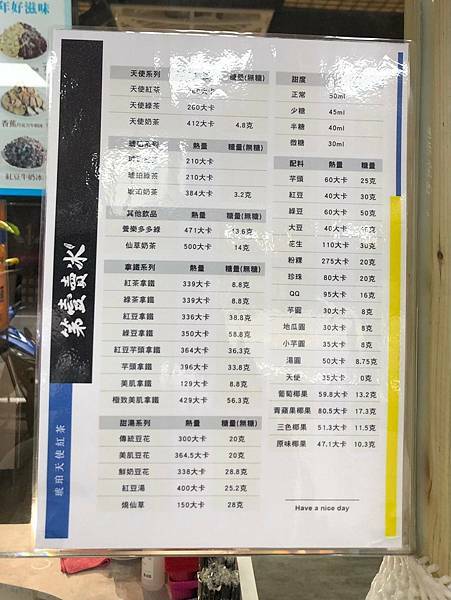 年好滋味
紅豆牛奶冰
第壹賣冰
琥珀天使紅茶
天使系列 糖量(無糖)
天使紅茶 大卡
天使綠茶 260大卡
天使奶茶 412大卡 4.8克
琥珀系列 熱量 糖量(無糖)
琥珀 210大卡
琥珀綠茶 210大卡
琥珀奶茶 384大卡 3.2克
其他飲品 熱量 糖量(無糖)
養樂多多綠 471大卡 13.6克
仙草奶茶 500大卡 14克
拿鐵系列 熱量 糖量(無糖)
紅茶拿鐵 339大卡 8.8克
綠茶拿鐵 339大卡 8.8克
紅豆拿鐵 336大卡 38.8克
綠豆拿鐵 350大卡 58.8克
紅豆芋頭拿鐵 364大卡 36.3克
芋頭拿鐵 396大卡 33.8克
美肌拿鐵 129大卡 8.8克
極致美肌拿鐵 429大卡 56.3克
甜湯系列 熱量 糖量(無糖)
傳統豆花 300大卡 20克
美肌豆花 364.5大卡 20克
鮮奶豆花 338大卡 28.8克
紅豆湯 400大卡 25.2克
燒仙草 150大卡 28克
甜度
正常 50ml
少糖 45ml
半糖 40ml
微糖 30ml
配料 熱量 糖量
芋頭 60大卡 25克
紅豆 40大卡 30克
綠豆 60大卡 50克
大豆 40大卡 克
花生 110大卡 30克
粉粿 275大卡 20克
珍珠 80大卡 20克
QQ 95大卡 16克
芋圓 30大卡 8克
地瓜圓 30大卡 8克
小芋圓 35大卡 8克
湯圓 50大卡 8.75克
天使 35大卡 0克
葡萄椰果 59.8大卡 13.2克
青蘋果椰果 80.5大卡 17.3克
三色椰果 51.3大卡 11.5克
原味椰果 47.1大卡 10.3克
Have a nice day